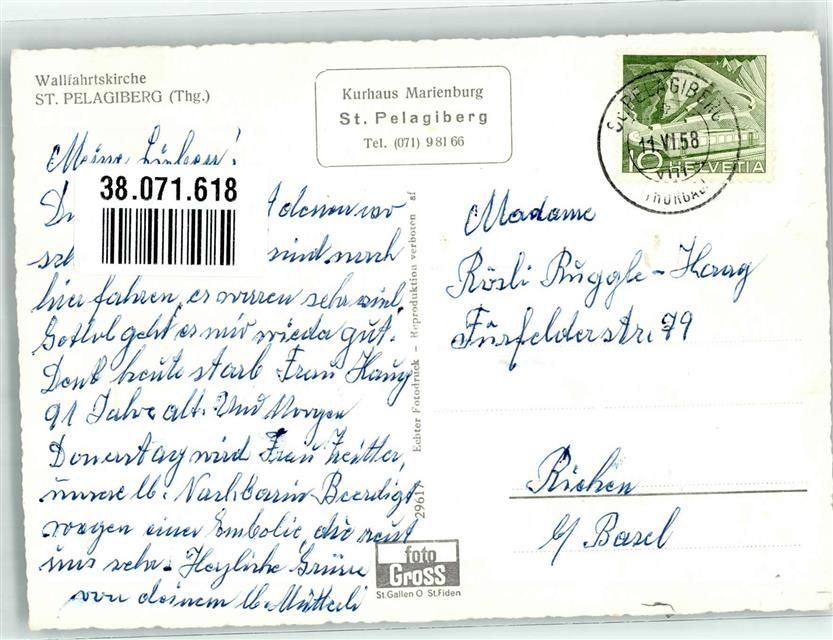 Wallfahrtskirche
ST. PELAGIBERG (Thg.)
Kurhaus Marienburg
St. Pelagiberg
Tel. (071) 9 81 66
ST. PELAGIBERG
11.VI.58
VIII
THURGAU
10
HELVETIA
38.071.618
Meine Lieben!
hier fahren, es waren sehr viel.
Gotlob geht es mir wieda gut.
Denk heute starb Frau Haug
91 Jahre alt. Und Morgen
Donerstag wird Frau Zeitter,
unsere lb. Nachbarin Beerdigt
wegen einer Embolie, die reut
uns sehr. Herzliche Grüsse
von deinem lb. Mütterli
Echter Fotodruck – Reproduktion verboten af
29617
foto
Gross
St. Gallen O St. Fiden
Madame
Rösli Ruggle-Haag
Fürfelderstr. 79
Riehen
b/ Basel